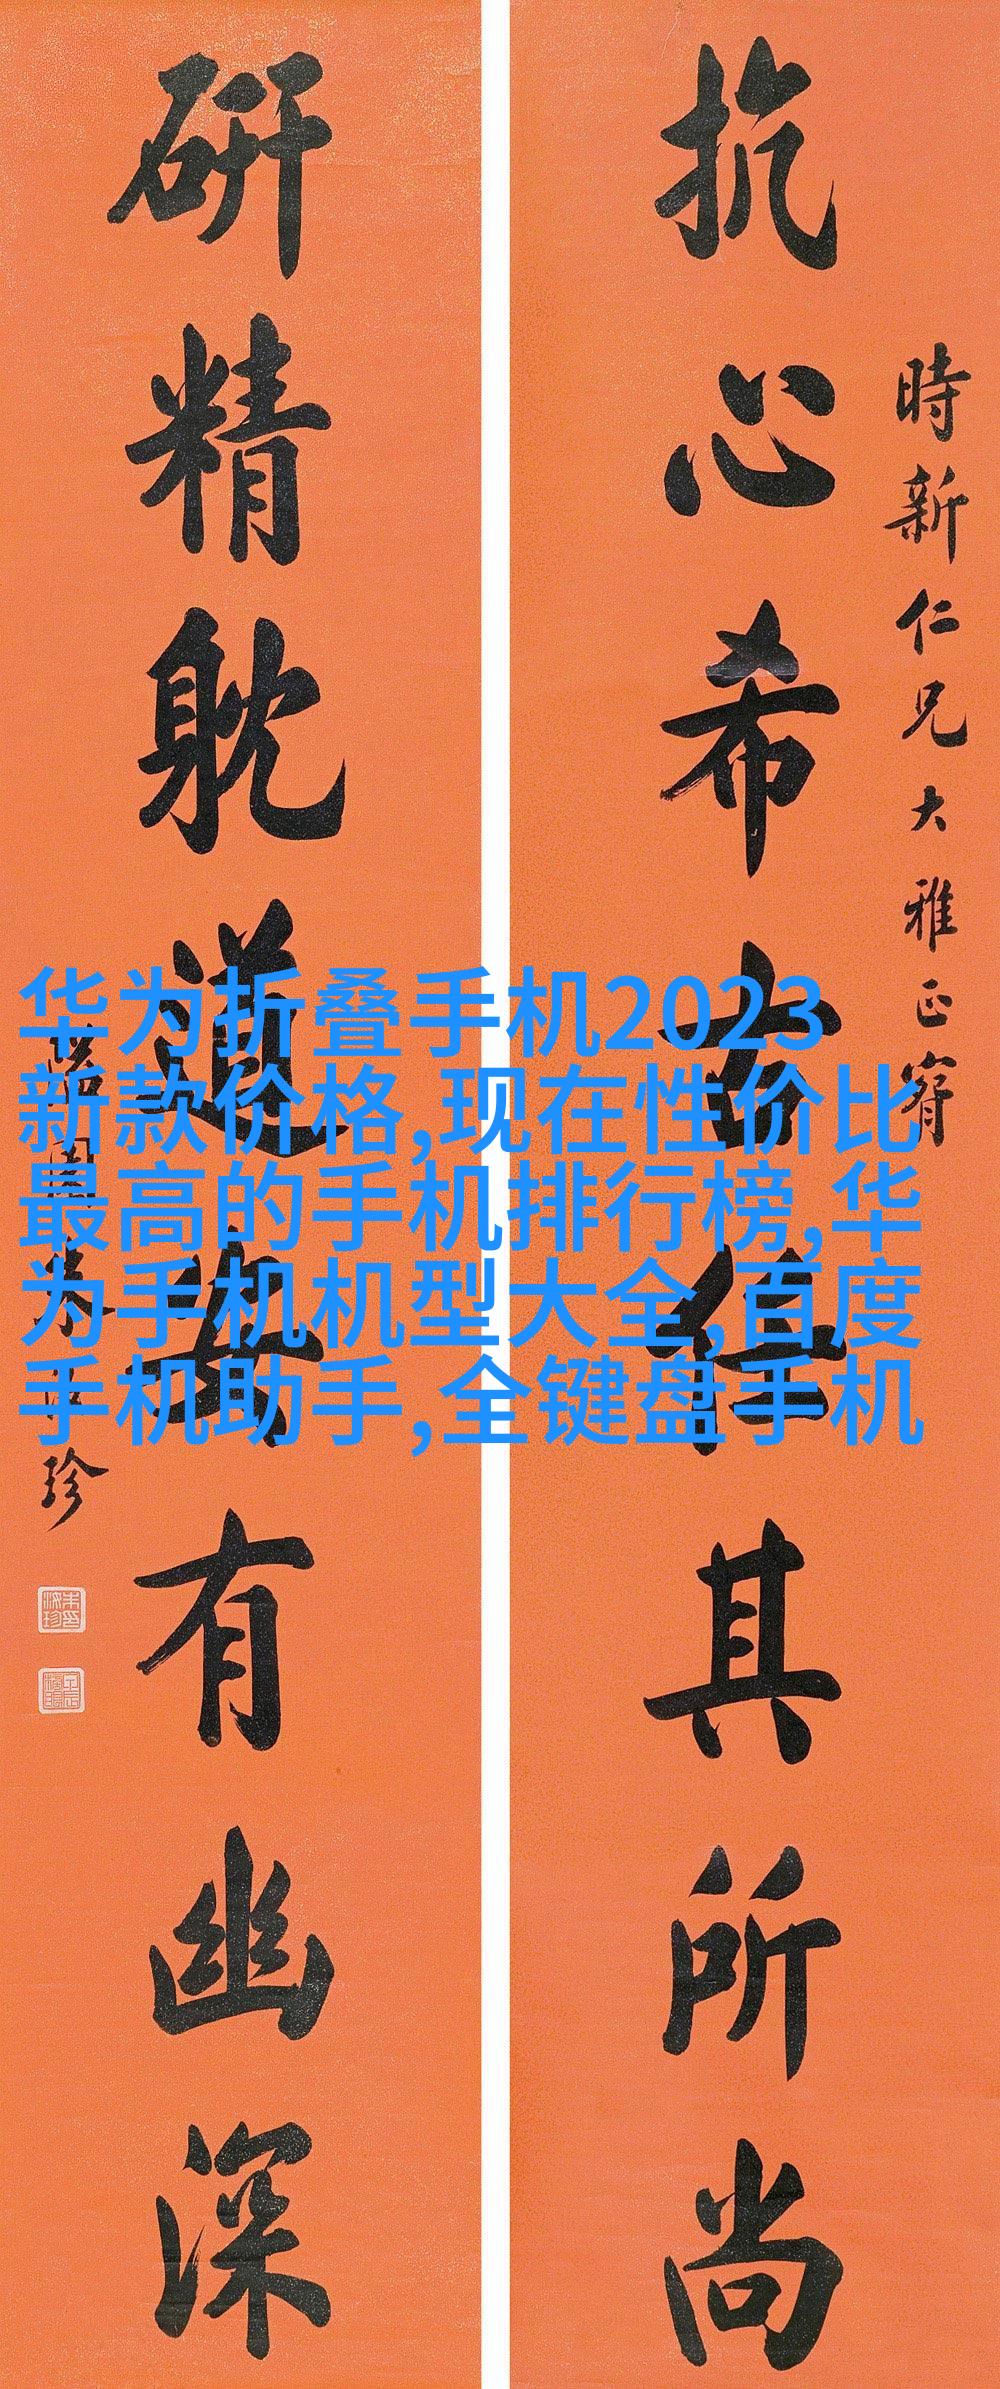 抗心希古任其所尚
時新仁兄大雅正
研精躭道安有幽深
園朱汝珍
华为折叠手机2023
新款价格,现在性价比
最高的手机排行榜,华
为手机机型大全,百度
手机助手,全键盘手机